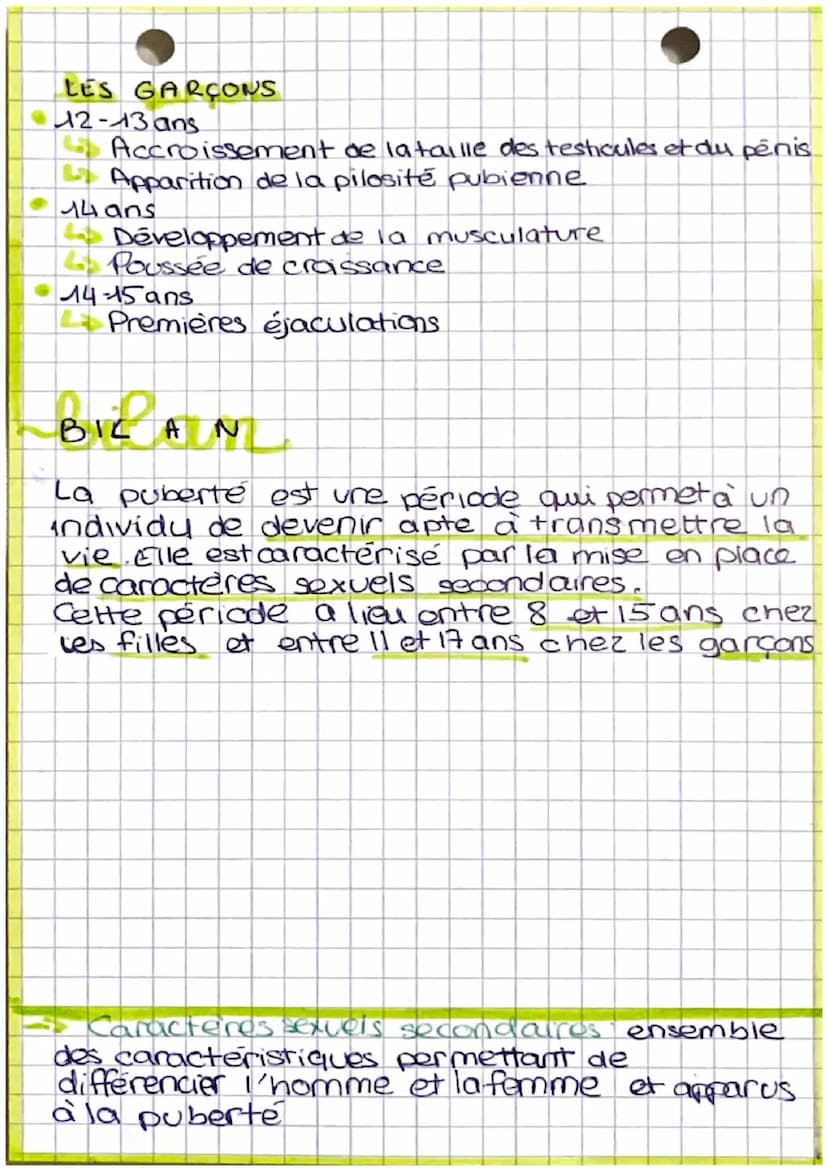 LES GARÇONS
12-13 ans
Accroissement de la taille des testicules et du pénis
Apparition de la pilosité pubienne
14 ans
Développement de la musculature
Poussée de croissance
14-15 ans
Premières éjaculations
bilan
BILAN
La puberté est une période qui permet à un
individu de devenir apte à transmettre la
vie. Elle est caractérisé par la mise en place
de caractères sexuels secondaires.
Cette période a lieu entre 8 et 15 ans chez
les filles et entre 11 et 17 ans chez les garçons
Caractères sexuels secondaires : ensemble
des caractéristiques permettant de
différencier l'homme et la femme et apparus
à la puberté